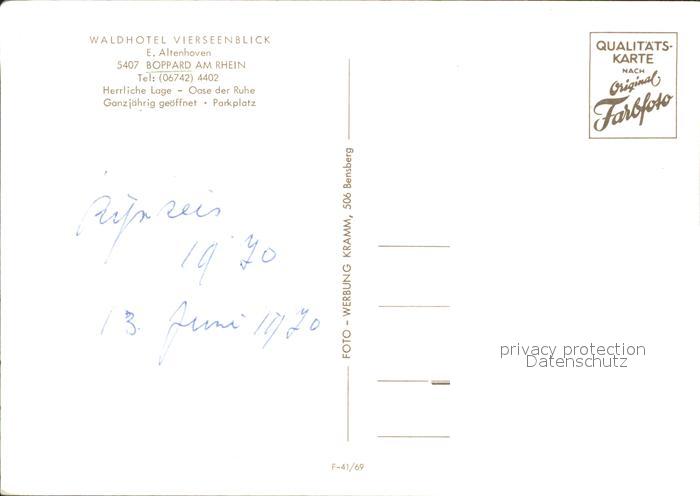 WALDHOTEL VIERSEENBLICK
E. Altenhoven
5407 BOPPARD AM RHEIN
Tel: (06742) 4402
Herrliche Lage – Oase der Ruhe
Ganzjährig geöffnet • Parkplatz
QUALITÄTS-
KARTE
NACH
Original
Farbfoto
FOTO – WERBUNG KRAMM, 506 Bensberg
Rijnreis
1970
13. Juni 1970
privacy protection
Datenschutz
F-41/69